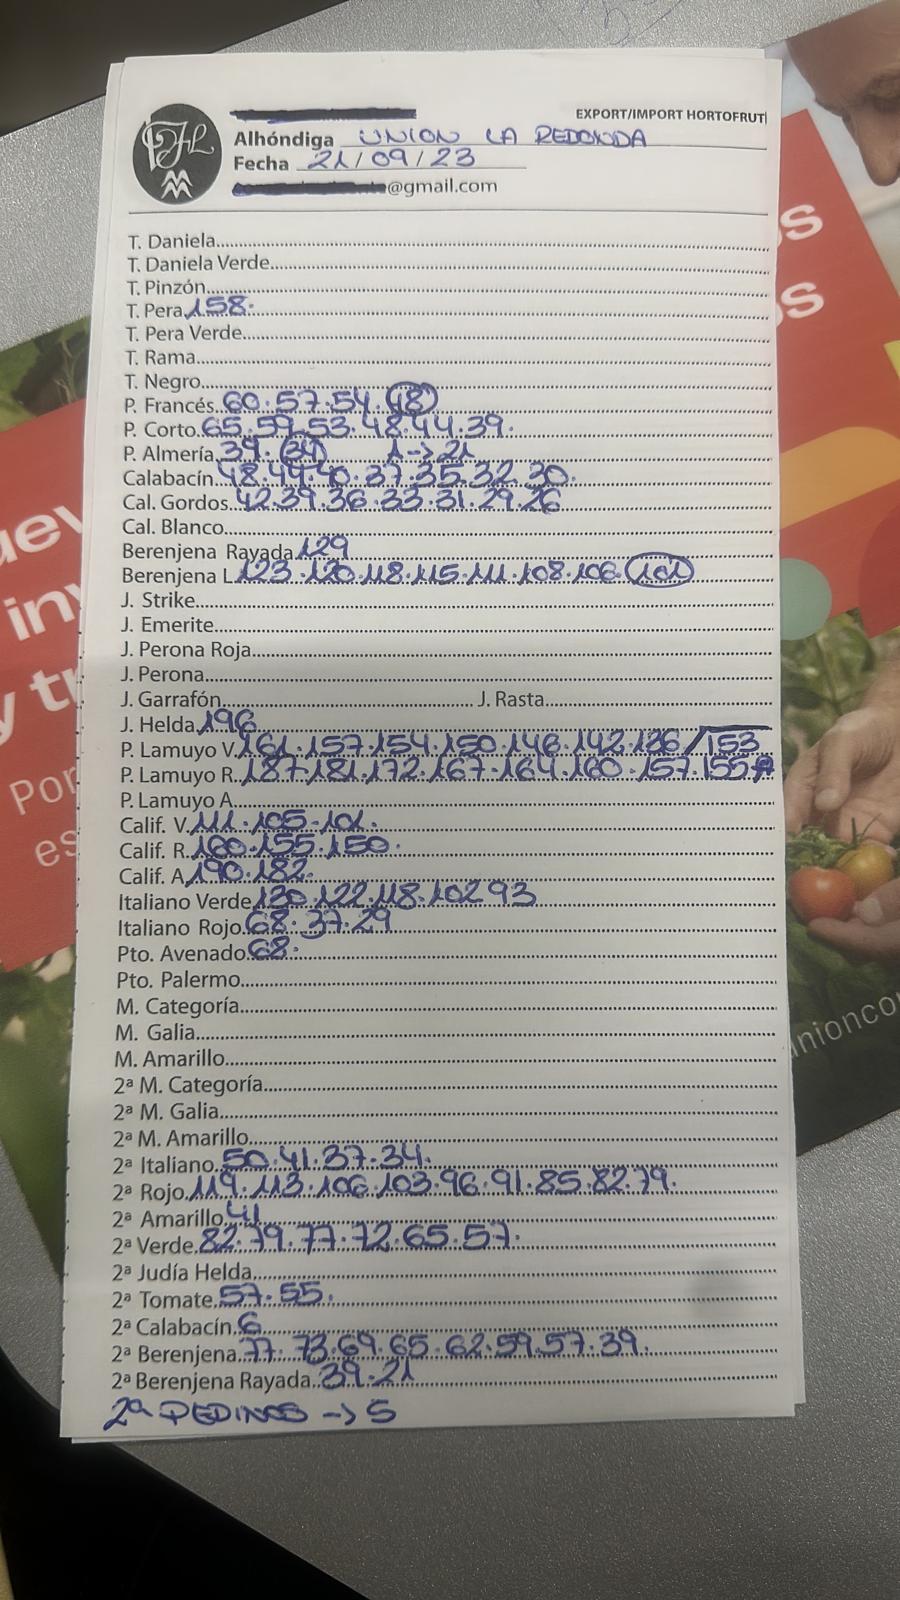 EXPORT/IMPORT HORTOFRUT
Alhóndiga UNION LA REDONDA
Fecha 21/09/23
@gmail.com
T. Daniela
T. Daniela Verde
T. Pinzón
T. Pera 158.
T. Pera Verde
T. Rama
T. Negro
P. Francés 60.57.54.48
P. Corto 65.59.53.48.44.39.
P. Almería 39.34 1->21
Calabacín 48.44.40.37.35.32.30.
Cal. Gordos 42.39.36.33.31.29.26
Cal. Blanco
Berenjena Rayada 129
Berenjena L 123.120.118.115.111.108.106.101
J. Strike
J. Emerite
J. Perona Roja
J. Perona
J. Garrafón J. Rasta
J. Helda 196
P. Lamuyo V. 161.157.154.150.146.142.136/153
P. Lamuyo R. 187.181.172.167.164.160.157.155
P. Lamuyo A
Calif. V. 111.105.101.
Calif. R. 160.155.150.
Calif. A 190.182.
Italiano Verde 130.122.118.102 93
Italiano Rojo 68.37.29
Pto. Avenado 68.
Pto. Palermo
M. Categoría
M. Galia
M. Amarillo
2ª M. Categoría
2ª M. Galia
2ª M. Amarillo
2ª Italiano 50.41.37.34.
2ª Rojo 119.113.106.103.96.91.85.82.79.
2ª Amarillo 41
2ª Verde 82.79.77.72.65.57.
2ª Judía Helda
2ª Tomate 57.55.
2ª Calabacín 6
2ª Berenjena 77.73.69.65.62.59.57.39.
2ª Berenjena Rayada 39.21
2ª PEPINOS -> 5
Por
es